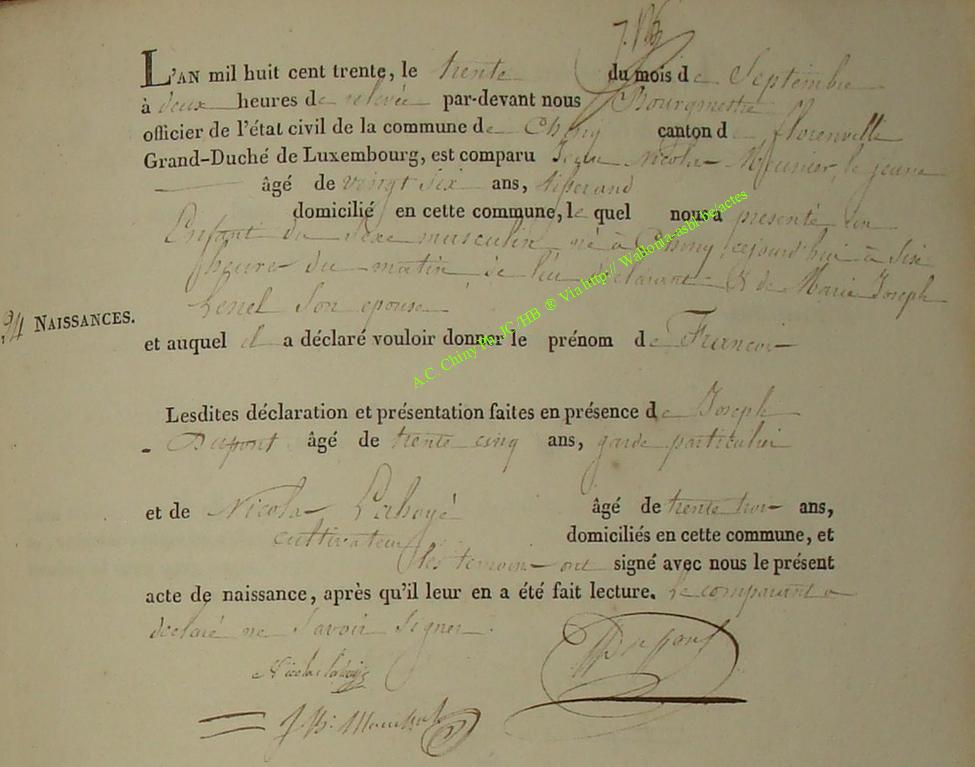 L'AN mil huit cent trente, le trente du mois de Septembre
à deux heures de relevée par-devant nous Bourgmestre
officier de l'état civil de la commune de Chiny canton de florenville
Grand-Duché de Luxembourg, est comparu Jean Nicolas Meunier, le jeune
âgé de vingt six ans, tisserand
domicilié en cette commune, le quel nous a presenté un
Enfant du sexe masculin né à Chiny cejourd'hui à six
heures du matin de lui déclarant & de Marie Joseph
Lenel Son epouse
94 NAISSANCES.
et auquel il a déclaré vouloir donner le prénom de François
Lesdites déclaration et présentation faites en présence de Joseph
Dupont âgé de trente cinq ans, garde particulier
et de Nicolas Lahoyé âgé de trente trois ans,
cultivateur domiciliés en cette commune, et
les temoins ont signé avec nous le présent
acte de naissance, après qu'il leur en a été fait lecture. le comparant a
declaré ne Savoir Signer.
Nicolas lahoyé Dupont
A.C. Chiny Par JC /HB ® Via http:// Wallonia-asbl.be/actes